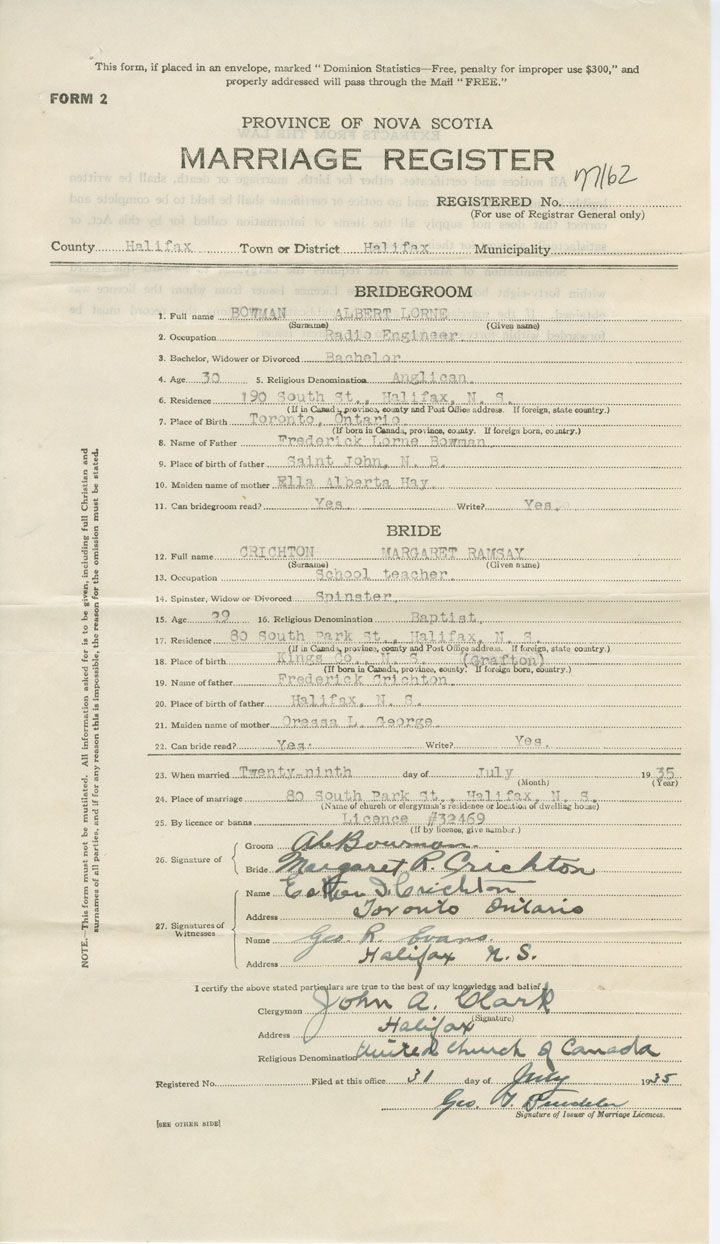 This form, if placed in an envelope, marked "Dominion Statistics—Free, penalty for improper use $300," and
properly addressed will pass through the Mail "FREE."
FORM 2
PROVINCE OF NOVA SCOTIA
MARRIAGE REGISTER
REGISTERED No.
(For use of Registrar General only)
County Halifax Town or District Halifax Municipality
BRIDEGROOM
1. Full name BOWMAN ALBERT LORNE
(Surname) (Given name)
2. Occupation Radio Engineer
3. Bachelor, Widower or Divorced Bachelor
4. Age 30 5. Religious Denomination Anglican
6. Residence 190 South St., Halifax, N. S.
(If in Canada, province, county and Post Office address. If foreign, state country.)
7. Place of Birth Toronto, Ontario
(If born in Canada, province, county. If foreign born, country.)
8. Name of Father Frederick Lorne Bowman
9. Place of birth of father Saint John, N. B.
10. Maiden name of mother Ella Alberta Hay
11. Can bridegroom read? Yes Write? Yes.
BRIDE
12. Full name CRICHTON MARGARET RAMSAY
(Surname) (Given name)
13. Occupation School teacher
14. Spinster, Widow or Divorced Spinster
15. Age 29 16. Religious Denomination Baptist
17. Residence 80 South Park St., Halifax, N. S.
(If in Canada, province, county and Post Office address. If foreign, state country.)
18. Place of birth Kings Co., N. S. (Grafton)
(If born in Canada, province, county. If foreign born, country.)
19. Name of father Frederick Crichton
20. Place of birth of father Halifax, N. S.
21. Maiden name of mother Oressa L. George
22. Can bride read? Yes. Write? Yes.
23. When married Twenty-ninth day of July 1935
(Month) (Year)
24. Place of marriage 80 South Park St., Halifax, N. S.
(Name of church or clergyman's residence or location of dwelling house)
25. By licence or banns Licence #32469
(If by licence, give number.)
26. Signature of
Groom Bowman
Bride Margaret R. Crichton
27. Signatures of Witnesses
Name Crichton
Address Toronto Ontario
Name Geo. R. Evans
Address Halifax N.S.
I certify the above stated particulars are true to the best of my knowledge and belief.
Clergyman John A. Clark
(Signature)
Address Halifax
Religious Denomination United Church of Canada
Registered No. Filed at this office 31 day of July 1935
Geo.
Signature of Issuer of Marriage Licences.
[SEE OTHER SIDE]
NOTE.—This form must not be mutilated. All information asked for is to be given, including full Christian and
surnames of all parties, and if for any reason this is impossible, the reason for the omission must be stated.